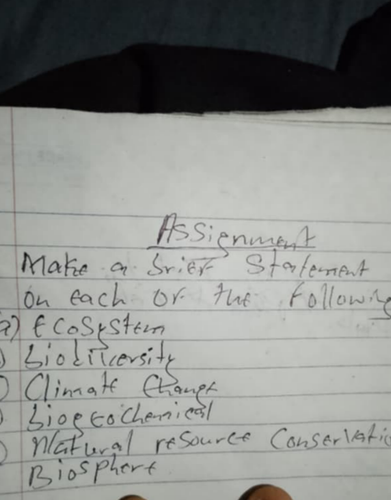 Assignment
Make a brief Statement
on each of the following
a) Ecosystem
) biodiversity
) Climate Change
) biogeochemical
) Natural resource Conservatio
Biosphere